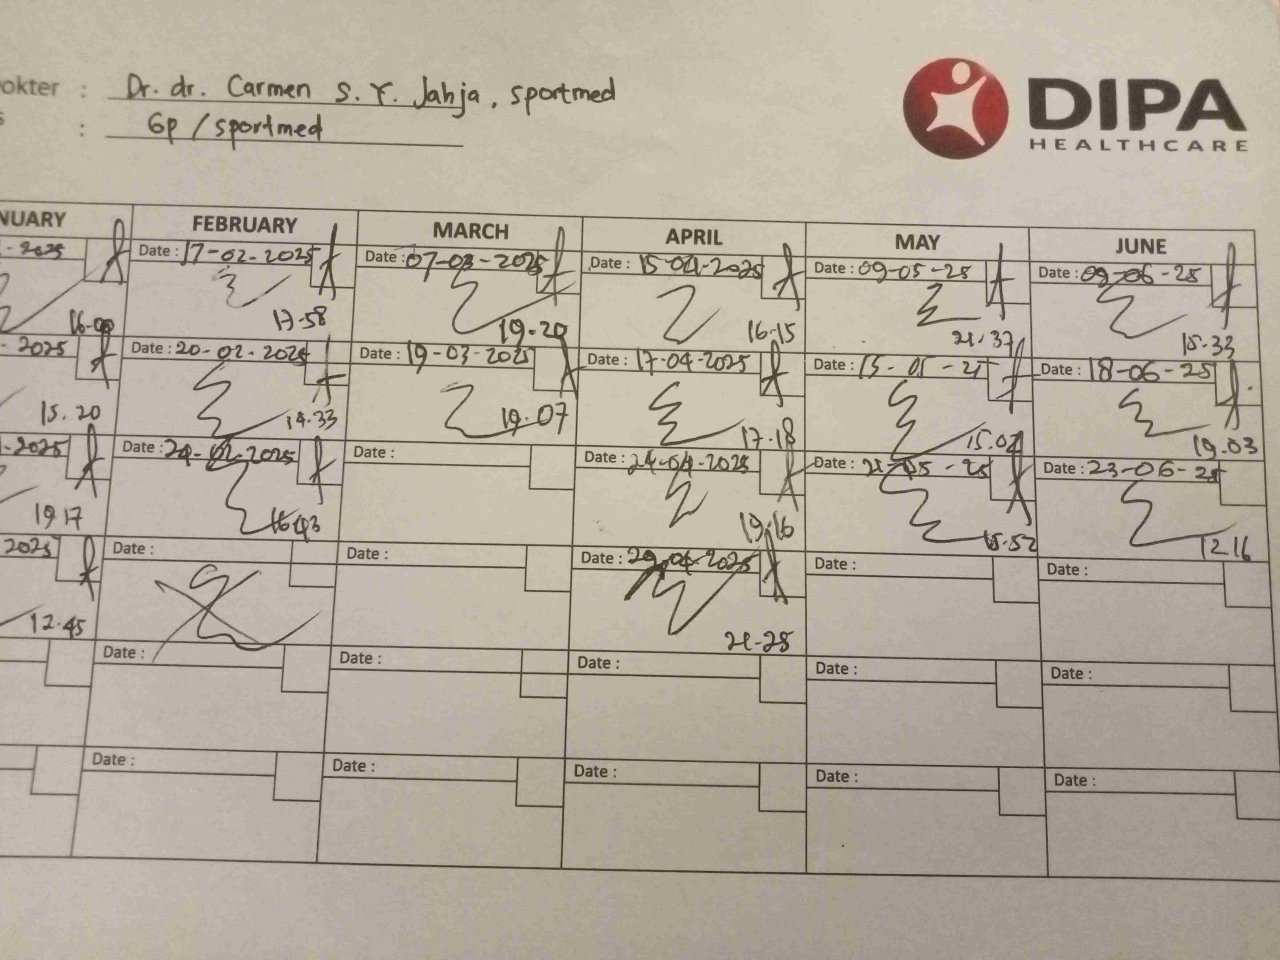 okter : Dr. dr. Carmen S. Y. Jahja, sportmed
s : Gp / sportmed
DIPA
HEALTHCARE
NUARY FEBRUARY MARCH APRIL MAY JUNE
- 2025 Date : 17-02-2025 Date : 07-03-2025 Date : 15-04-2025 Date : 09-05-25 Date : 09-06-25
17-58 19-20 16-15 21.37 15.33
- 2025 Date : 20-02-2025 Date : 19-03-2025 Date : 17-04-2025 Date : 15-05-25 Date : 18-06-25
15.20 14.33 19.07 17.18 15.02 19.03
-2025 Date : 24-02-2025 Date : Date : 24-04-2025 Date : 21-05-25 Date : 23-06-25
19.17 16.43 19.16 15.52 12.16
2025 Date : Date : Date : 29.04.2025 Date : Date :
12.45 21-28
Date : Date : Date : Date : Date :
Date : Date : Date : Date : Date :